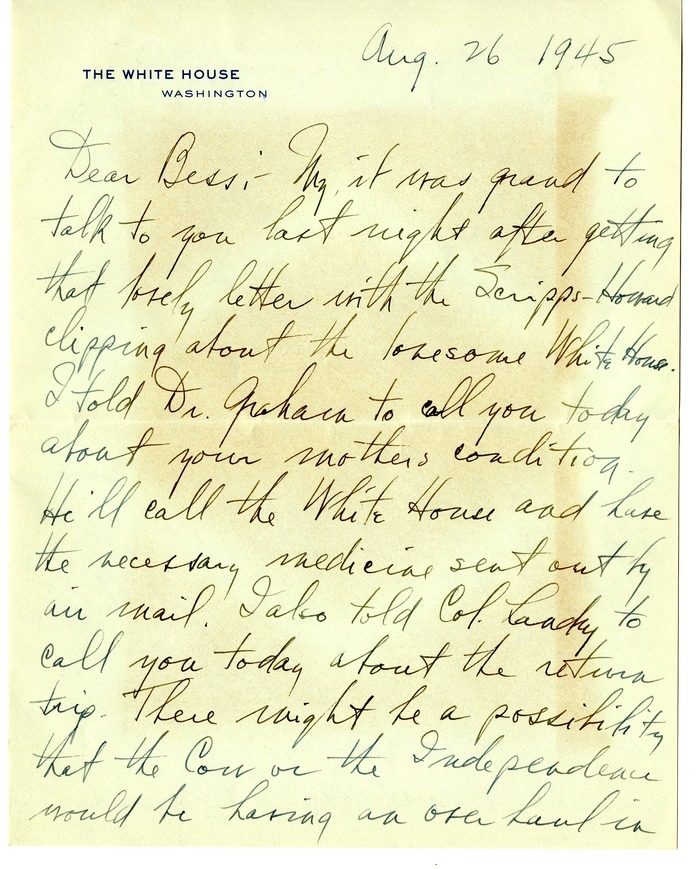 Aug. 26 1945
THE WHITE HOUSE
WASHINGTON
Dear Bess;- My, it was grand to
talk to you last night after getting
that lovely letter with the Scripps-Howard
clipping about the lonesome White House.
I told Dr. Graham to call you today
about your mothers condition.
He'll call the White House and have
the necessary medicine sent out by
air mail. I also told Col. Landry to
call you today about the return
trip. There might be a possibility
that the Cow or the Independence
would be having an over haul in